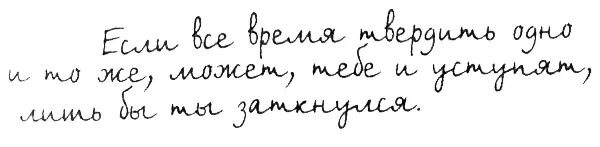 Если все время твердить одно
и то же, может, тебе и уступят,
лишь бы ты заткнулся.